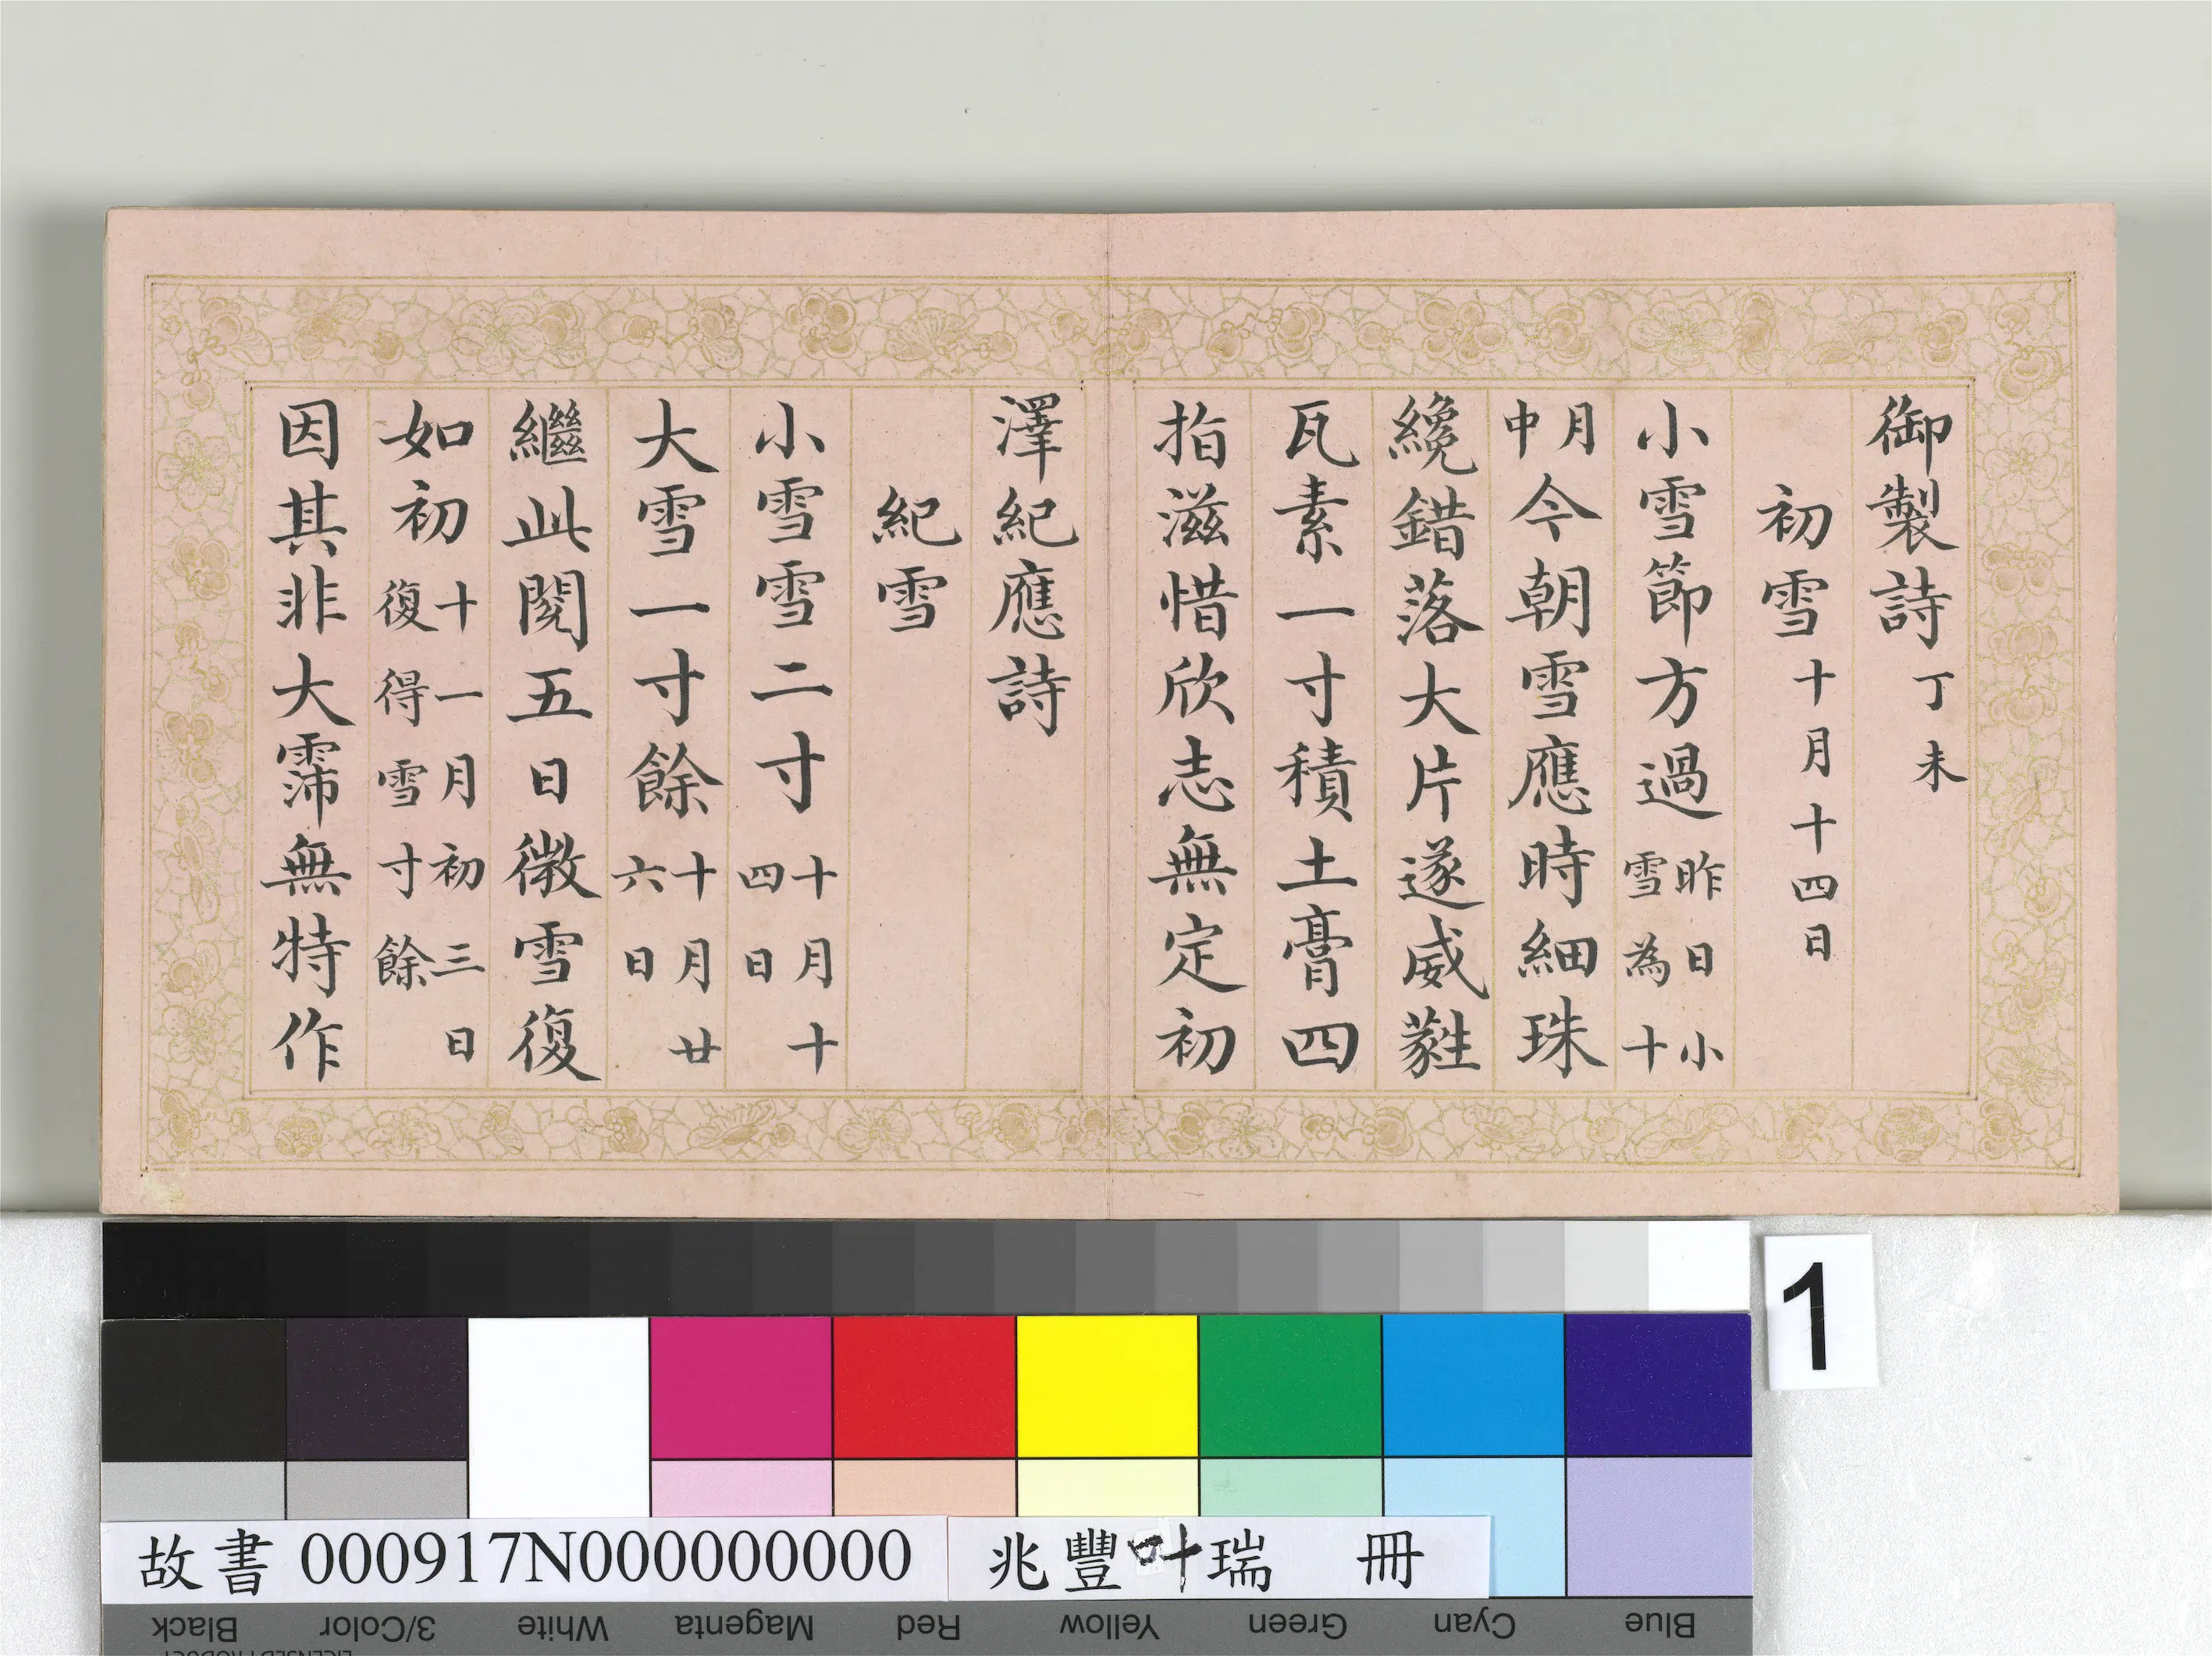 御製詩丁未
初雪十月十四日
小雪節方過昨日小雪為十
月中今朝雪應時細珠
纔錯落大片遂威蕤
瓦素一寸積土膏四
指滋惜欣志無定初
澤紀應詩
紀雪
小雪雪二寸十月十四日
大雪一寸餘十月廿六日
繼此閱五日微雪復
如初十一月初三日復得雪寸餘
因其非大霈無特作
1
故書 000917N000000000
兆豐叶瑞 冊
Black 3/Color White Magenta Red Yellow Green Cyan Blue